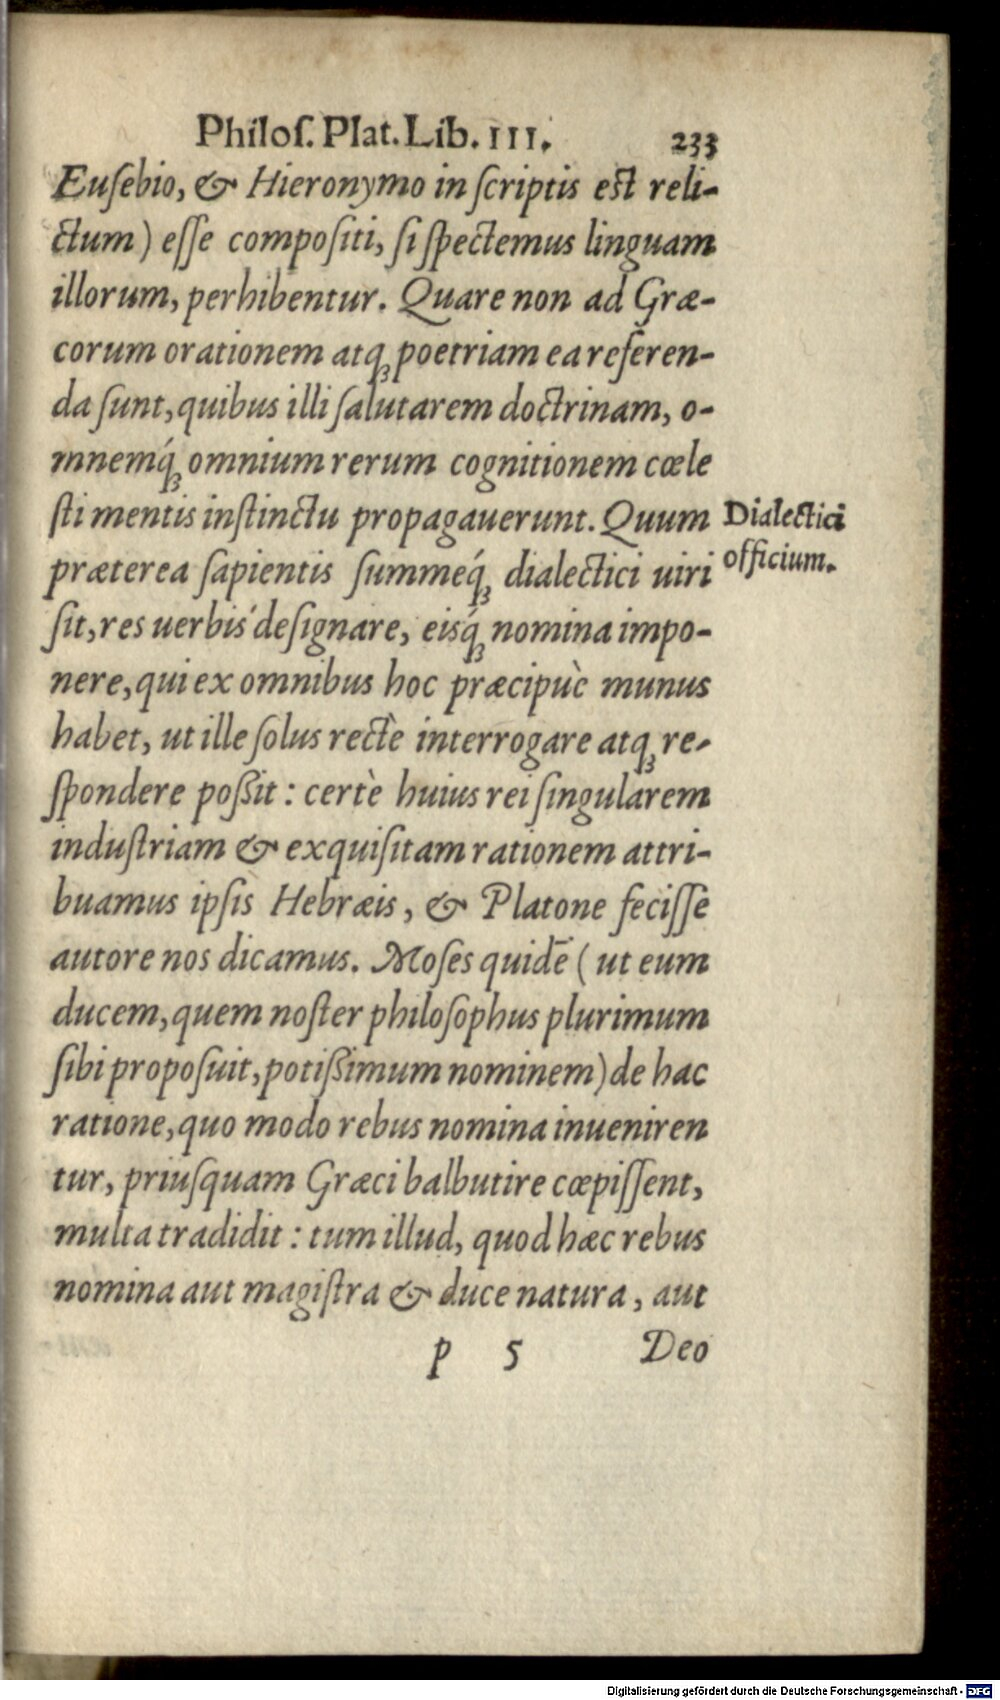 Philoſ. Plat. Lib. III. 233
Euſebio, & Hieronymo in ſcriptis est reli-
ctum) eſſe compoſiti, ſi ſpectemus linguam
illorum, perhibentur. Quare non ad Græ-
corum orationem atq; poetriam ea referen-
da ſunt, quibus illi ſalutarem doctrinam, o-
mnemq́; omnium rerum cognitionem cœle
ſti mentis inſtinctu propagauerunt. Quum
Dialectici
officium.
præterea ſapientis ſummeq́; dialectici uiri
ſit, res uerbis deſignare, eisq́; nomina impo-
nere, qui ex omnibus hoc præcipuè munus
habet, ut ille ſolus rectè interrogare atq; re-
ſpondere poßit: certè huius rei ſingularem
induſtriam & exquiſitam rationem attri-
buamus ipſis Hebræis, & Platone feciſſe
autore nos dicamus. Moſes quidē (ut eum
ducem, quem noſter philoſophus plurimum
ſibi propoſuit, potißimum nominem) de hac
ratione, quo modo rebus nomina inueniren
tur, priuſquam Græci balbutire cœpiſſent,
multa tradidit: tum illud, quod hæc rebus
nomina aut magiſtra & duce natura, aut
p 5 Deo
Digitalisierung gefördert durch die Deutsche Forschungsgemeinschaft - DFG